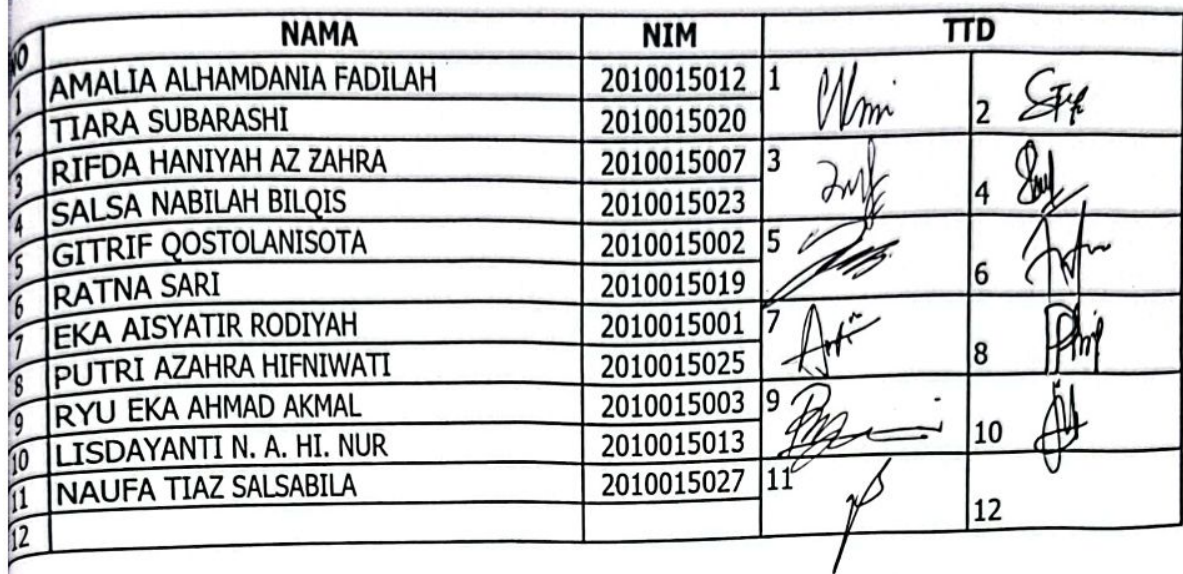 NO NAMA NIM TTD
1 AMALIA ALHAMDANIA FADILAH 2010015012 1
2 TIARA SUBARASHI 2010015020 2
3 RIFDA HANIYAH AZ ZAHRA 2010015007 3
4 SALSA NABILAH BILQIS 2010015023 4
5 GITRIF QOSTOLANISOTA 2010015002 5
6 RATNA SARI 2010015019 6
7 EKA AISYATIR RODIYAH 2010015001 7
8 PUTRI AZAHRA HIFNIWATI 2010015025 8
9 RYU EKA AHMAD AKMAL 2010015003 9
10 LISDAYANTI N. A. HI. NUR 2010015013 10
11 NAUFA TIAZ SALSABILA 2010015027 11
12 12